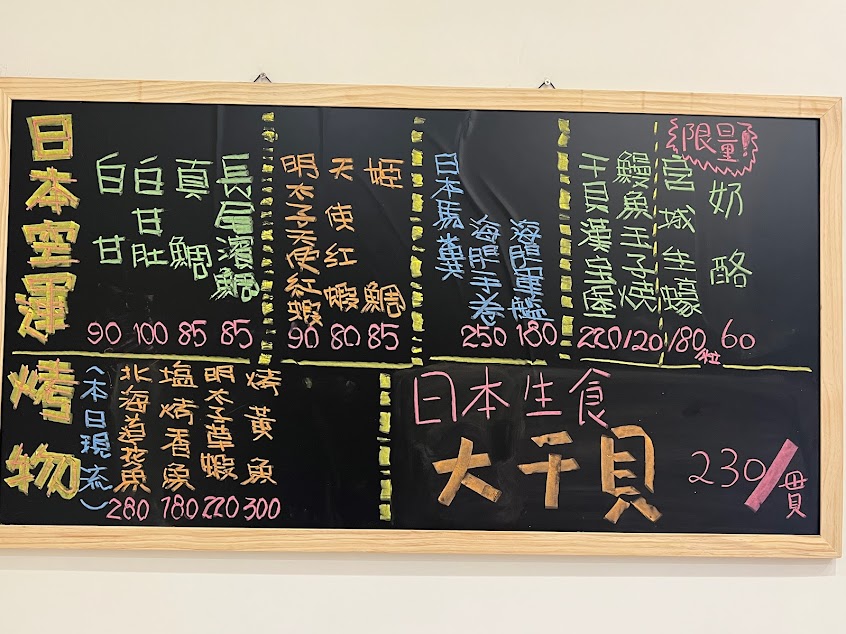 日本空運
白甘 90
白甘肚 100
真鯛 85
長尾濱鯛 85
明太子天使紅蝦 90
天使紅蝦 80
姬鯛 85
日本馬糞
海膽手卷 250
海膽軍艦 180
干貝漢 220
鰻魚玉子燒 120
限量!
宮城生蠔 180/粒
奶酪 60
烤物
(本日現流)
北海道花魚 280
塩烤香魚 180
明太子草蝦 220
烤黃魚 300
日本生食
大干貝 230/貫